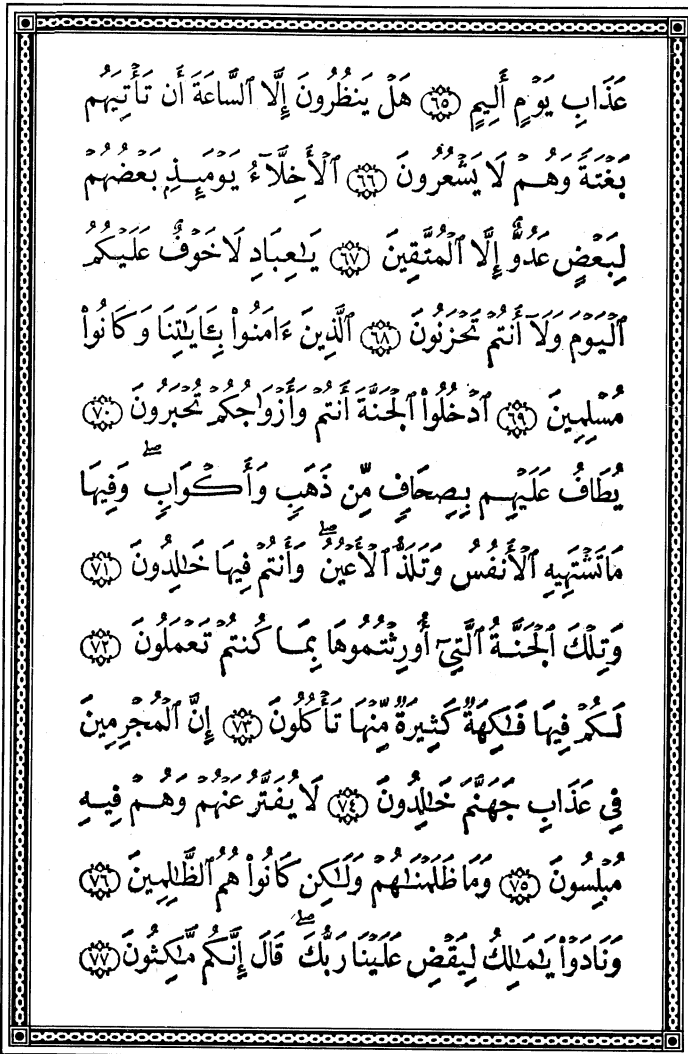 عَذَابِ يَوْمٍ أَلِيمٍ ﴿٦٥﴾ هَلْ يَنظُرُونَ إِلَّا ٱلسَّاعَةَ أَن تَأْتِيَهُم
بَغْتَةً وَهُمْ لَا يَشْعُرُونَ ﴿٦٦﴾ ٱلْأَخِلَّآءُ يَوْمَئِذٍۭ بَعْضُهُمْ
لِبَعْضٍ عَدُوٌّ إِلَّا ٱلْمُتَّقِينَ ﴿٦٧﴾ يَٰعِبَادِ لَا خَوْفٌ عَلَيْكُمُ
ٱلْيَوْمَ وَلَآ أَنتُمْ تَحْزَنُونَ ﴿٦٨﴾ ٱلَّذِينَ ءَامَنُوا۟ بِـَٔايَٰتِنَا وَكَانُوا۟
مُسْلِمِينَ ﴿٦٩﴾ ٱدْخُلُوا۟ ٱلْجَنَّةَ أَنتُمْ وَأَزْوَٰجُكُمْ تُحْبَرُونَ ﴿٧٠﴾
يُطَافُ عَلَيْهِم بِصِحَافٍ مِّن ذَهَبٍ وَأَكْوَابٍ ۖ وَفِيهَا
مَا تَشْتَهِيهِ ٱلْأَنفُسُ وَتَلَذُّ ٱلْأَعْيُنُ ۖ وَأَنتُمْ فِيهَا خَٰلِدُونَ ﴿٧١﴾
وَتِلْكَ ٱلْجَنَّةُ ٱلَّتِىٓ أُورِثْتُمُوهَا بِمَا كُنتُمْ تَعْمَلُونَ ﴿٧٢﴾
لَكُمْ فِيهَا فَٰكِهَةٌ كَثِيرَةٌ مِّنْهَا تَأْكُلُونَ ﴿٧٣﴾ إِنَّ ٱلْمُجْرِمِينَ
فِى عَذَابِ جَهَنَّمَ خَٰلِدُونَ ﴿٧٤﴾ لَا يُفَتَّرُ عَنْهُمْ وَهُمْ فِيهِ
مُبْلِسُونَ ﴿٧٥﴾ وَمَا ظَلَمْنَٰهُمْ وَلَٰكِن كَانُوا۟ هُمُ ٱلظَّٰلِمِينَ ﴿٧٦﴾
وَنَادَوْا۟ يَٰمَٰلِكُ لِيَقْضِ عَلَيْنَا رَبُّكَ ۖ قَالَ إِنَّكُم مَّٰكِثُونَ ﴿٧٧﴾